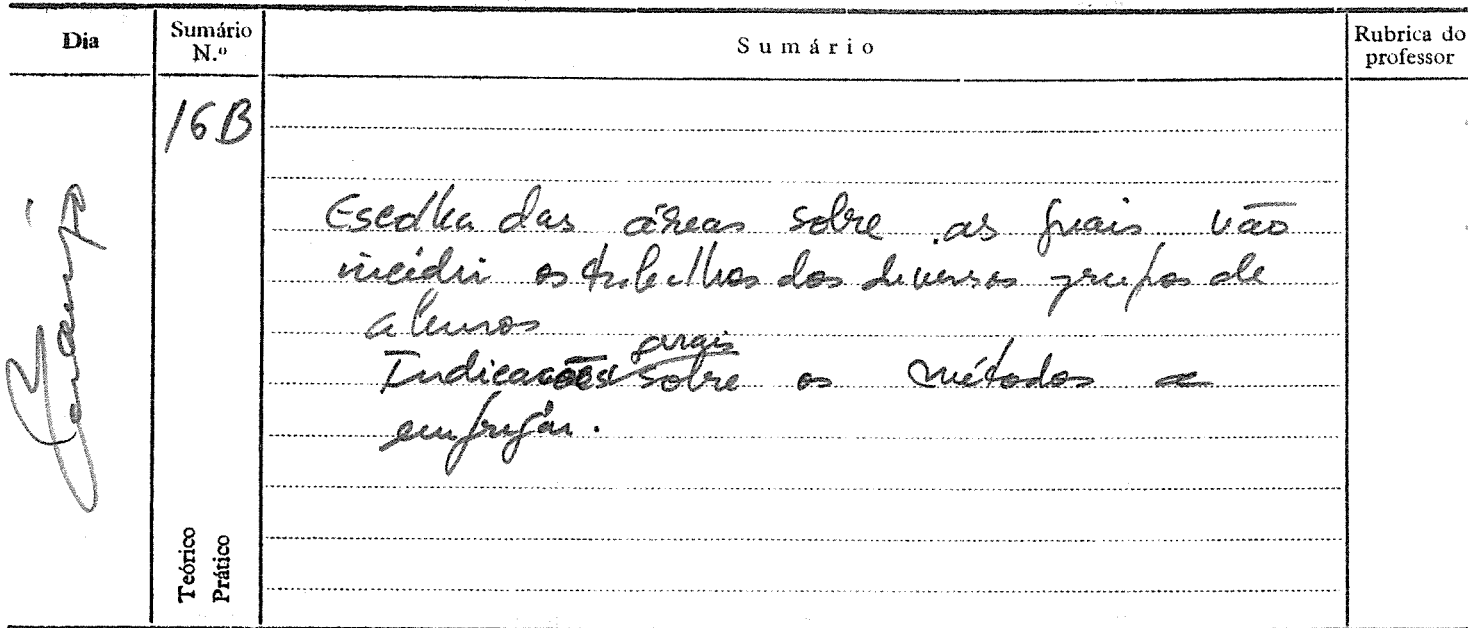 Dia
Sumário N.º
Sumário
Rubrica do professor
16B
Escolha das áreas sobre as quais vão
incidir os trabalhos dos diversos grupos de
alunos
gerais
Indicações sobre os métodos a
empregar.
Teórico
Prático